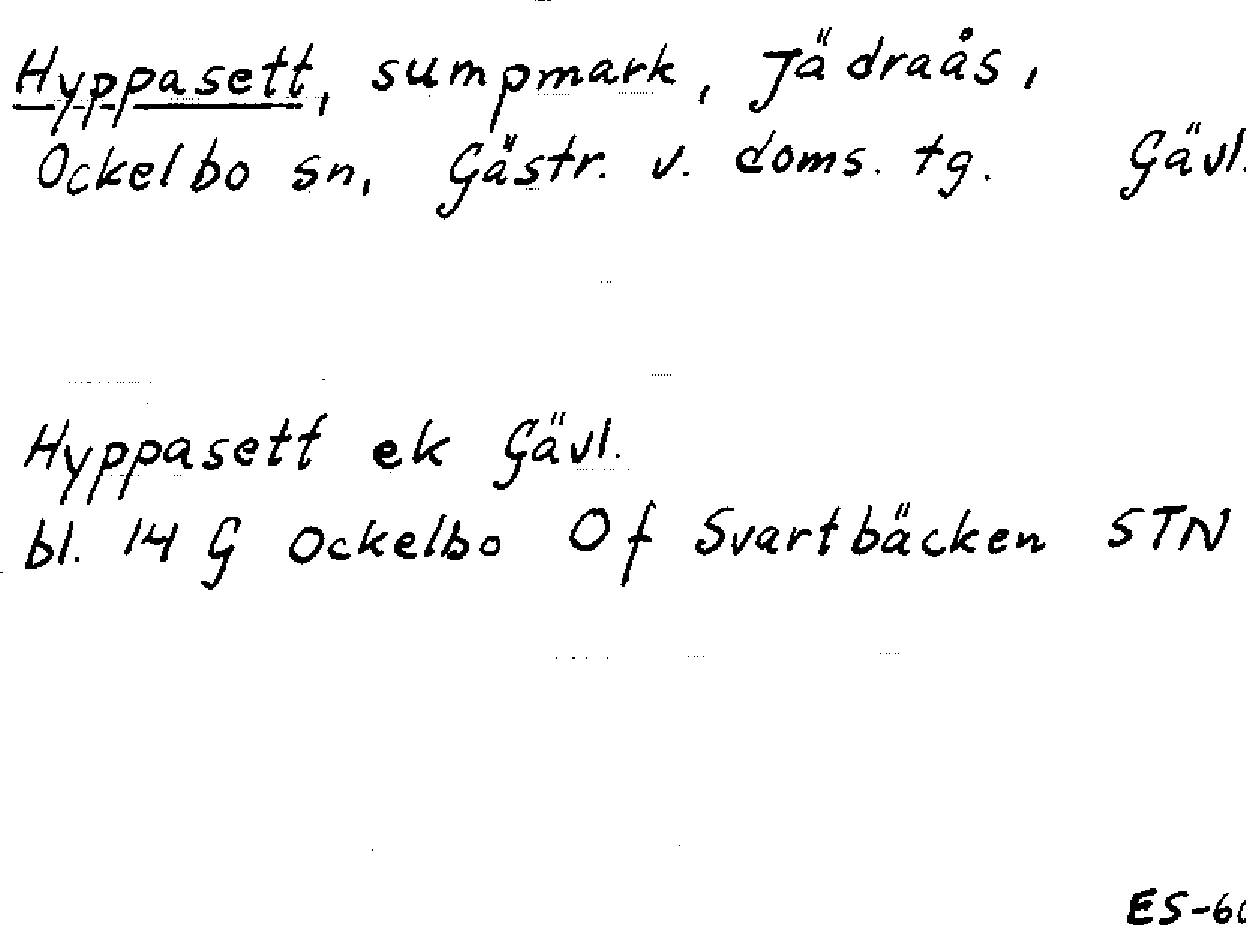 Hyppasett, sumpmark, Jädraås,
Ockelbo sn, Gästr. v. doms. tg. Gävl.
Hyppasett ek Gävl.
bl. 14 G Ockelbo Of Svartbäcken STN
ES-60